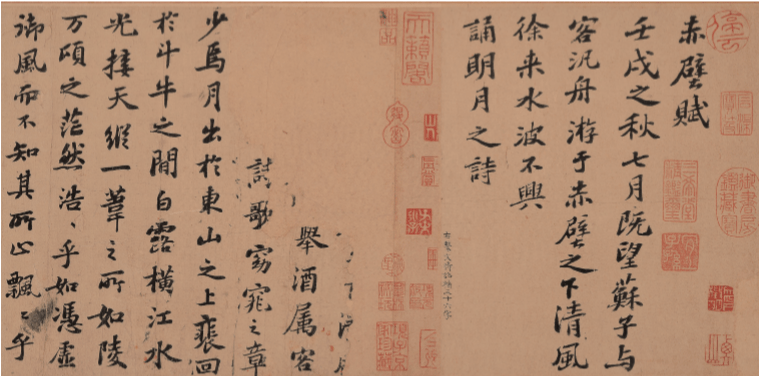 赤壁賦
壬戌之秋七月既望蘇子与
客汎舟游于赤壁之下清風
徐来水波不興
誦明月之詩
天籟閣
舉酒属客
詩歌窈窕之章
少焉月出於東山之上裵回
於斗牛之間白露橫江水
光接天縱一葦之所如陵
万頃之茫然浩〻乎如憑虛
御風而不知其所止飄〻乎